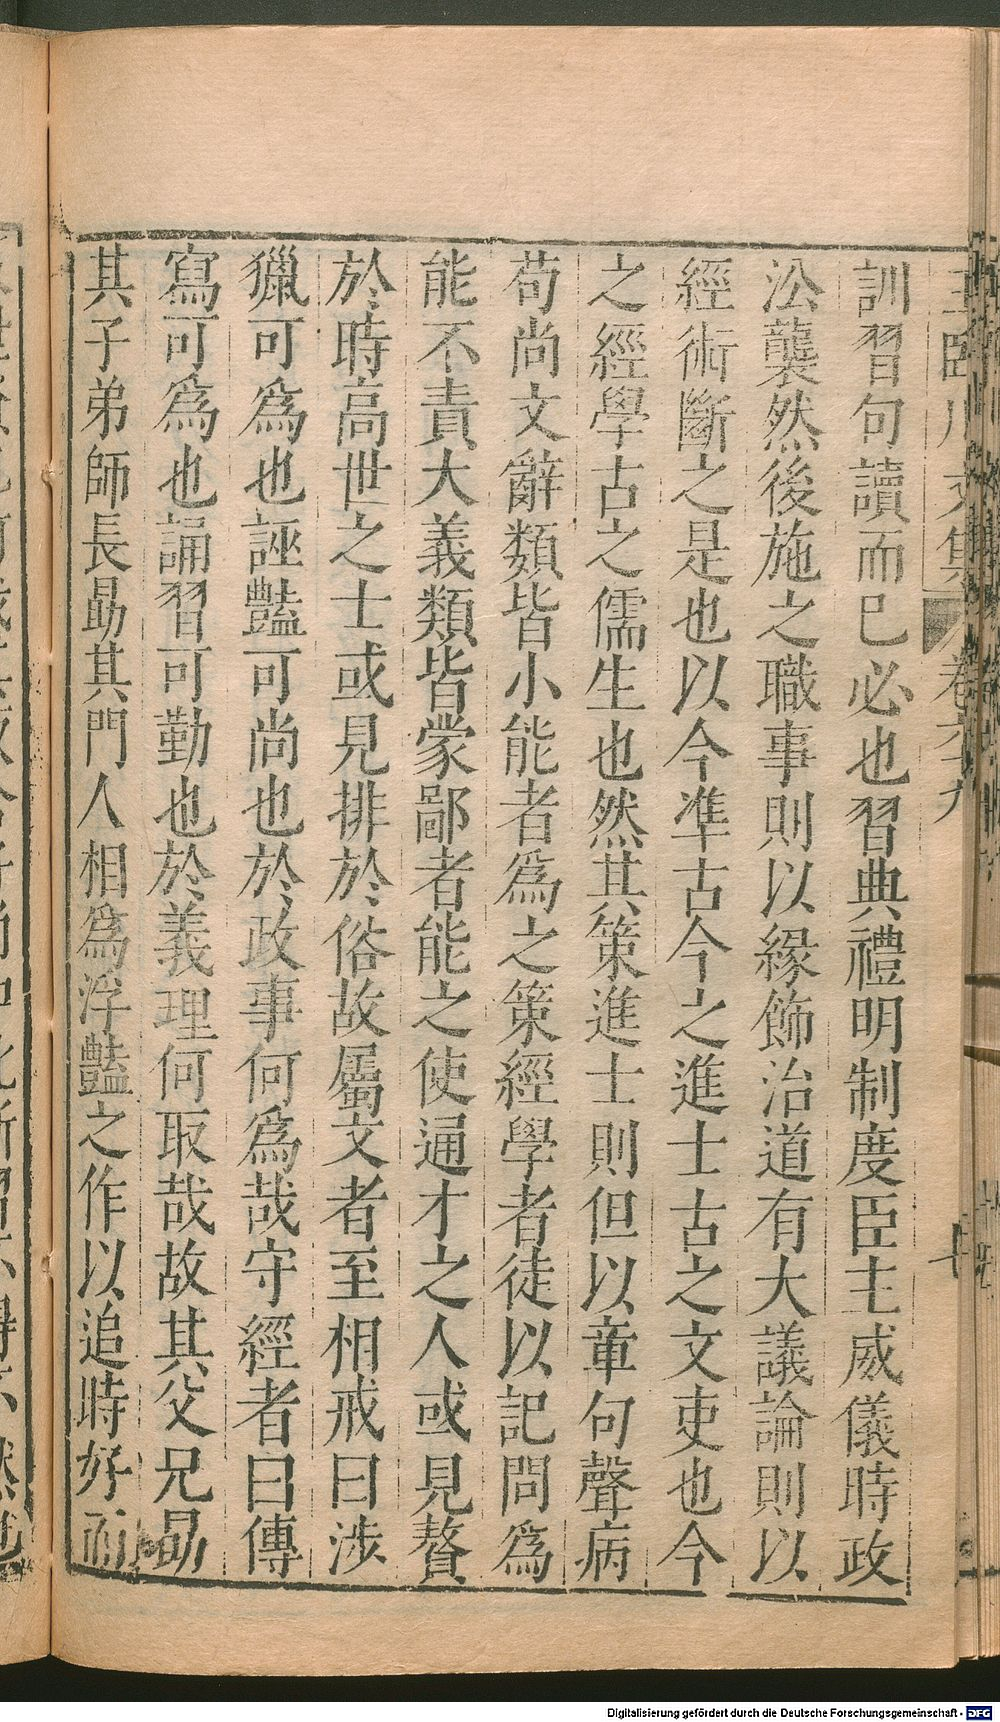 王臨川文集 卷六十九 十
訓習句讀而巳必也習典禮明制度臣主威儀時政
㳂襲然後施之職事則以緣飾治道有大議論則以
經術斷之是也以今準古今之進士古之文吏也今
之經學古之儒生也然其策進士則但以章句聲病
苟尚文辭類皆小能者爲之策經學者徒以記問爲
能不責大義類皆蒙鄙者能之使通才之人或見贅
於時高世之士或見排於俗故屬文者至相戒曰涉
獵可爲也誣豔可尚也於政事何爲哉守經者曰傳
寫可爲也誦習可勤也於義理何取哉故其父兄勗
其子弟師長勗其門人相爲浮豔之作以追時好而
Digitalisierung gefördert durch die Deutsche Forschungsgemeinschaft - DFG